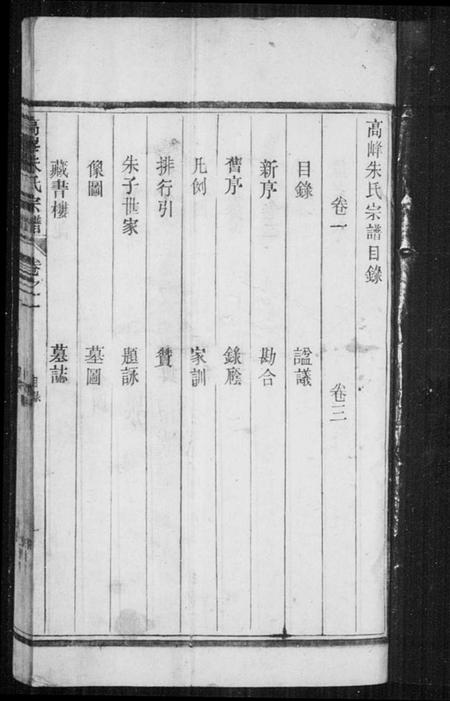 高峰朱氏宗譜目錄
卷一 卷三
目錄 諡議
新序 勘合
舊序 錄廕
凡例 家訓
排行引 贊
朱子世家 題詠
像圖 墓圖
藏書樓 墓誌
高峰朱氏宗譜 卷之一 目錄 一